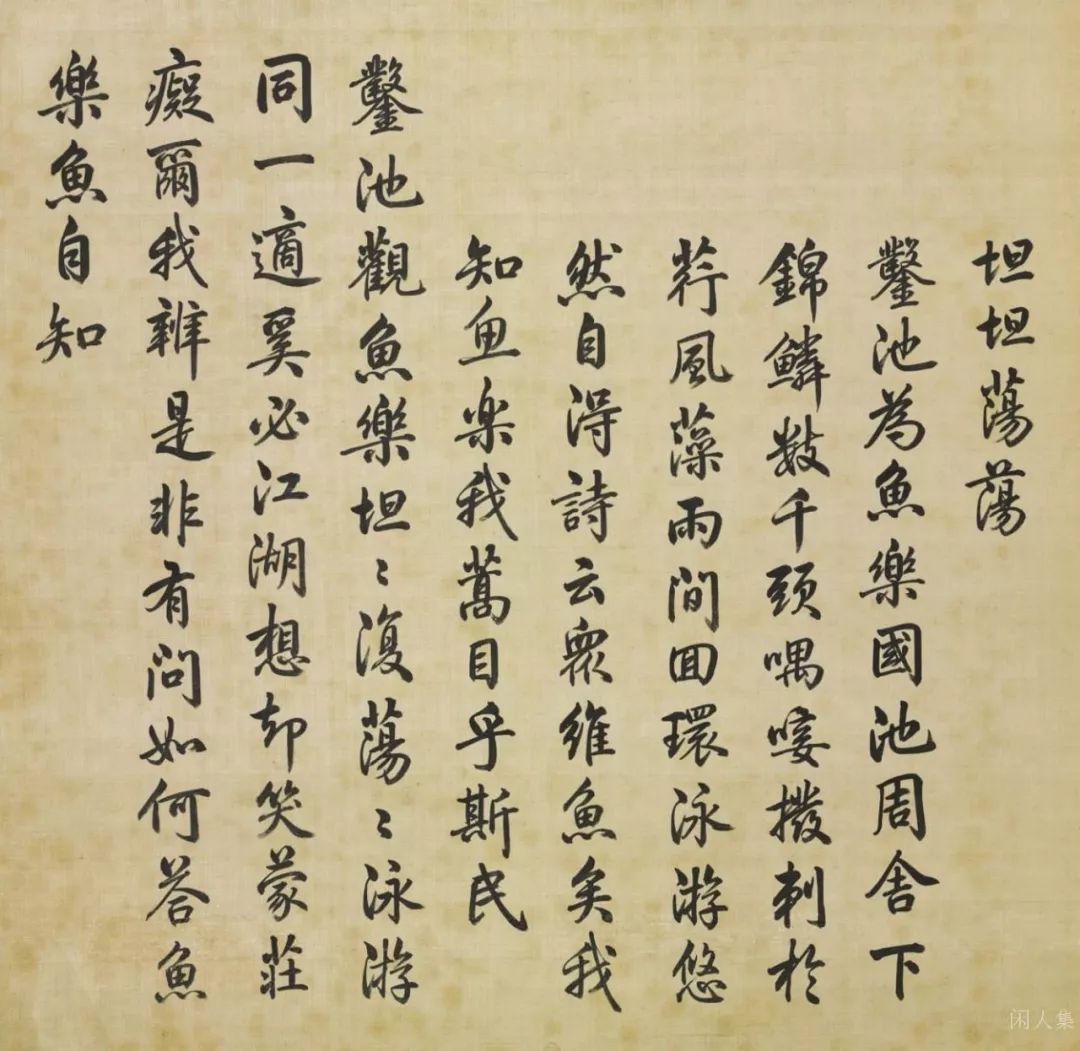 坦坦蕩蕩
鑿池為魚樂國池周舎下
錦鱗數千頭喁唼撥刺於
荇風藻雨間回環泳游悠
然自淂詩云衆維魚矣我
知鱼楽我蒿目乎斯民
鑿池觀魚樂坦〻復蕩〻泳游
同一適奚必江湖想却笑蒙莊
癡爾我辨是非有問如何答魚
樂魚自知
闲人集